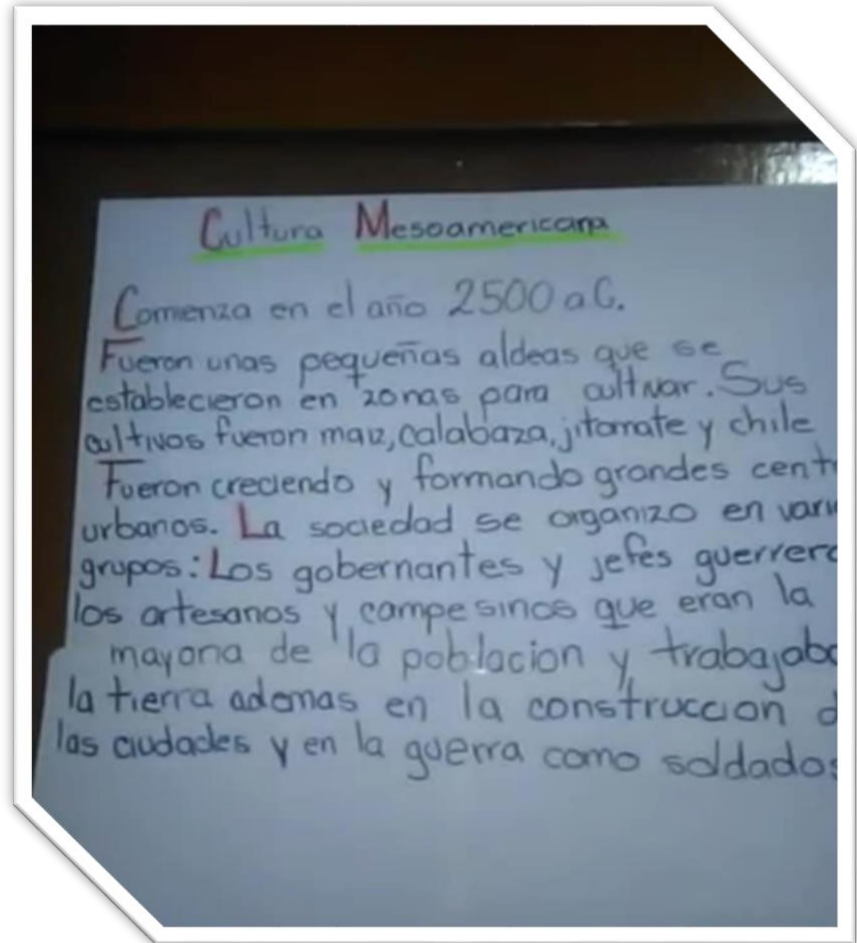 Cultura Mesoamericana
Comienza en el año 2500 a C.
Fueron unas pequeñas aldeas que se
establecieron en zonas para cultivar. Sus
cultivos fueron maiz, calabaza, jitomate y chile
Fueron creciendo y formando grandes cent
urbanos. La sociedad se organizo en vari
grupos: Los gobernantes y jefes guerrero
los artesanos y campesinos que eran la
mayoria de la poblacion y trabajaba
la tierra ademas en la construccion d
las ciudades y en la guerra como soldados